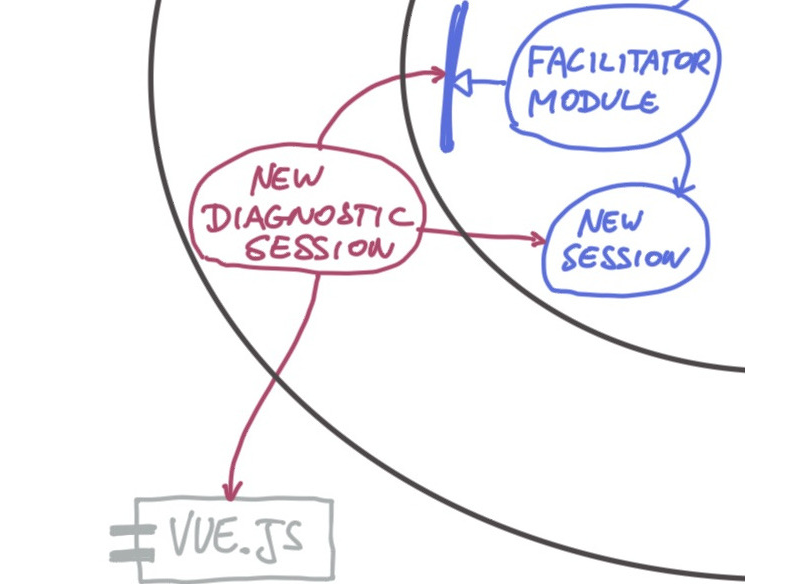 FACILITATOR
MODULE
NEW
DIAGNOSTIC
SESSION
NEW
SESSION
VUE.JS